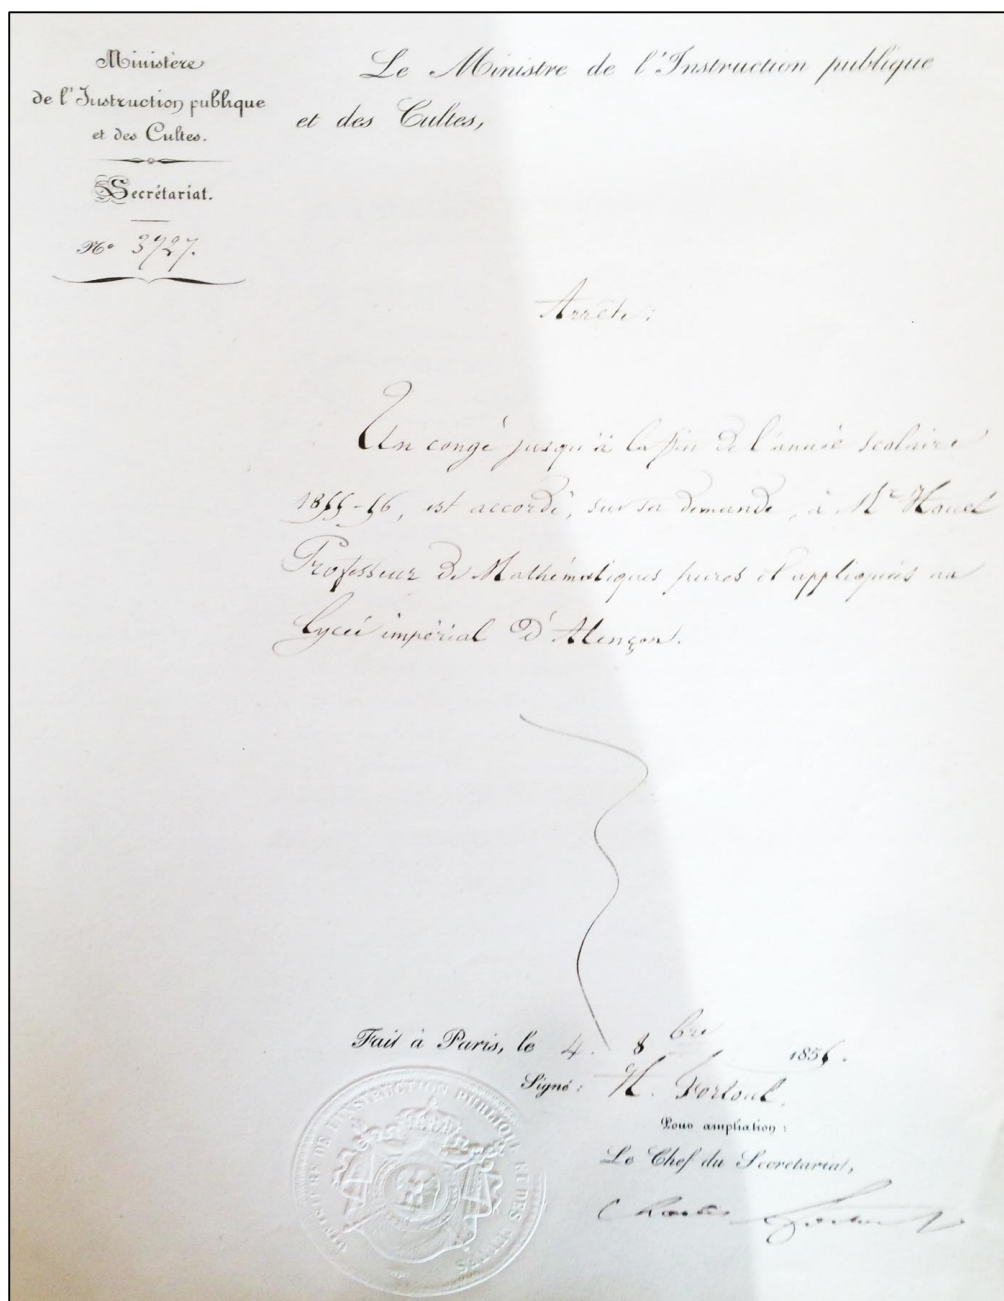 Ministère
de l'Instruction publique
et des Cultes.
Secrétariat.
N° 3927.
Le Ministre de l'Instruction publique
et des Cultes,
Arrête :
Un congé jusqu'à la fin de l'année scolaire
1855-56, est accordé, sur sa demande, à Mr Houel
Professeur de Mathématiques pures et appliquées au
Lycée impérial d'Alençon.
Fait à Paris, le 4. 8bre 1855.
Signé : H. Fortoul.
Pour ampliation :
Le Chef du Secrétariat,
Charles
MINISTÈRE DE L'INSTRUCTION PUBLIQUE ET DES CULTES